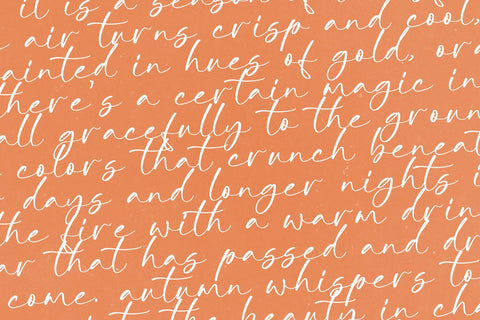 it is a season of
air turns crisp and cool,
ainted in hues of gold, or
there's a certain magic in
all gracefully to the groun
colors that crunch beneat
days and longer nights i
the fire with a warm drin
ar that has passed and dr
come. autumn whispers to
the beauty in cha